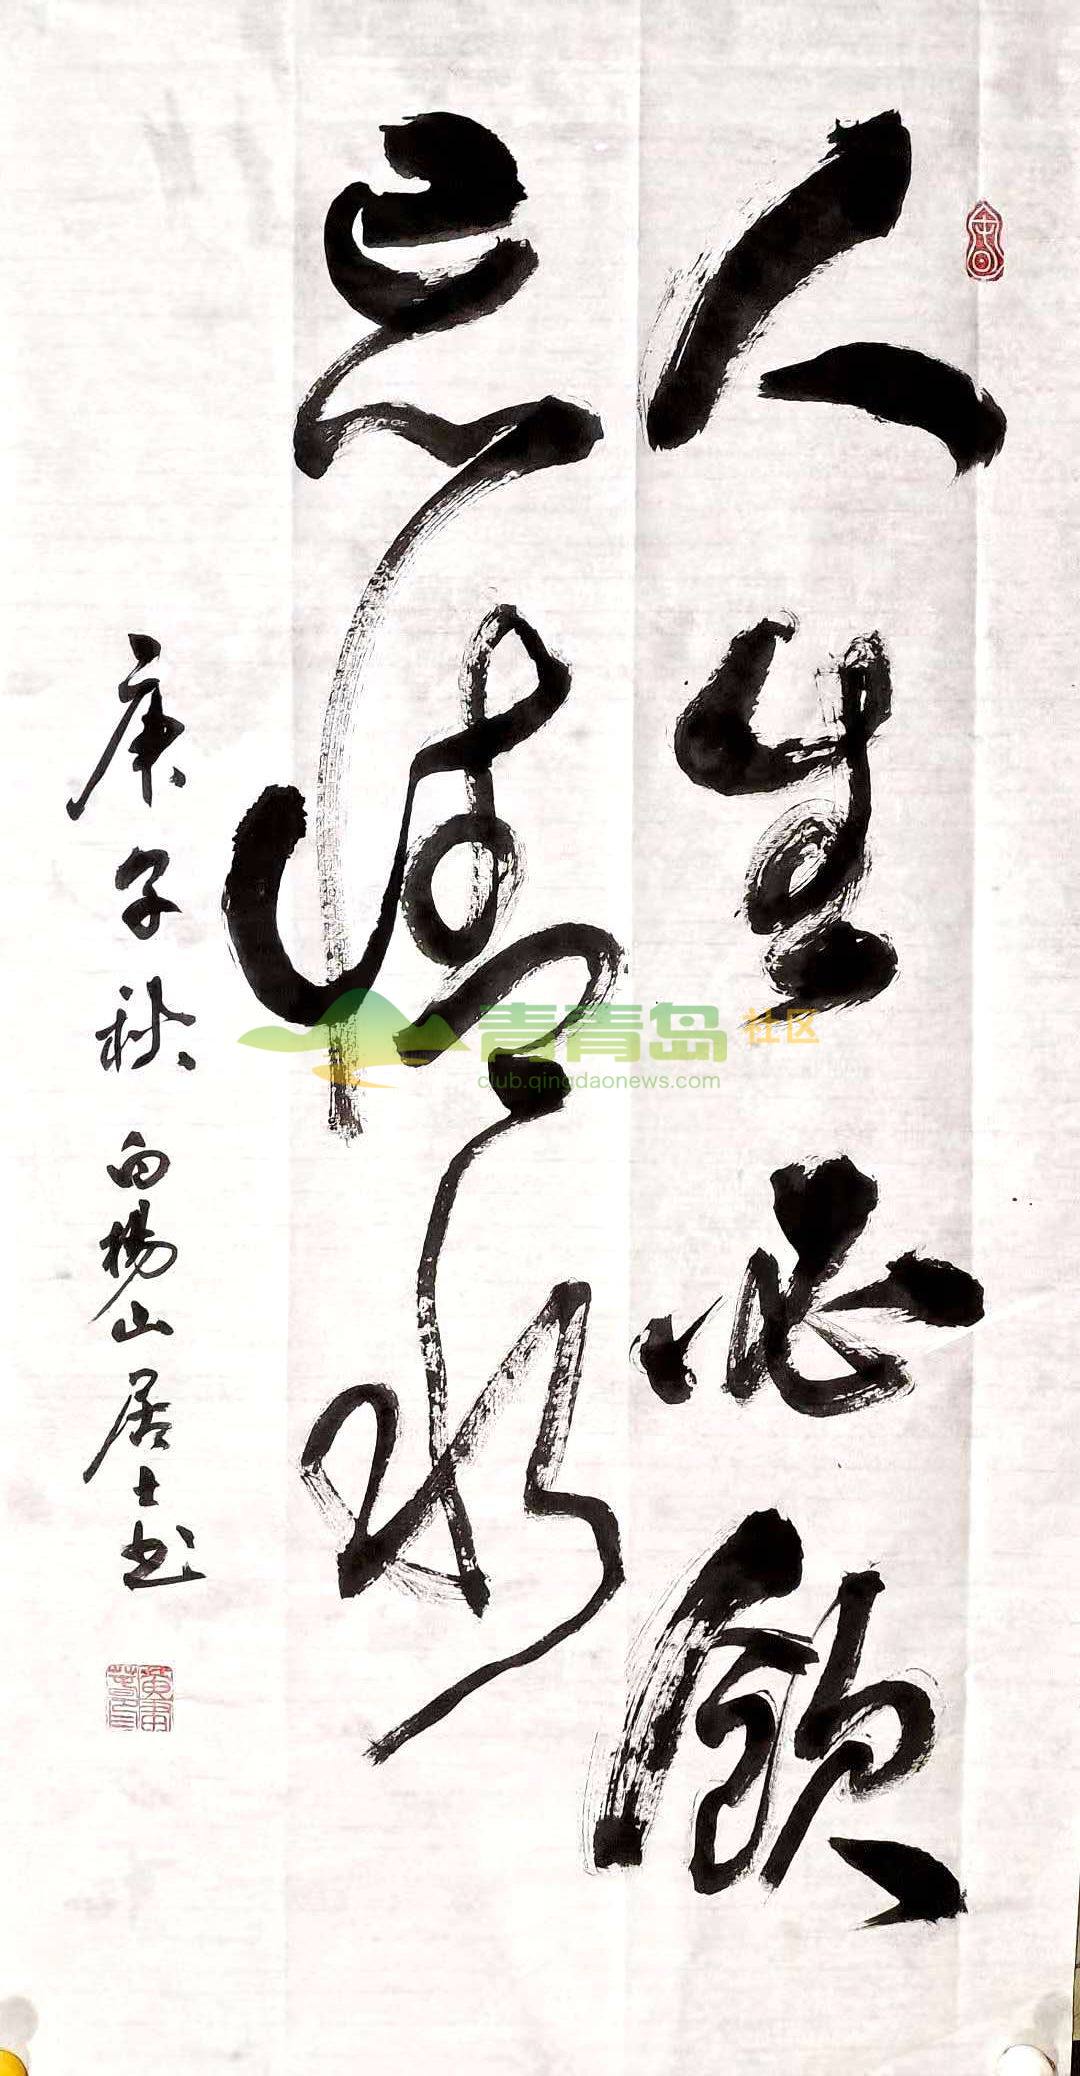 人生必饮
忘情水
庚子秋 白杨山居士书
青青岛社区
club.qingdaonews.com